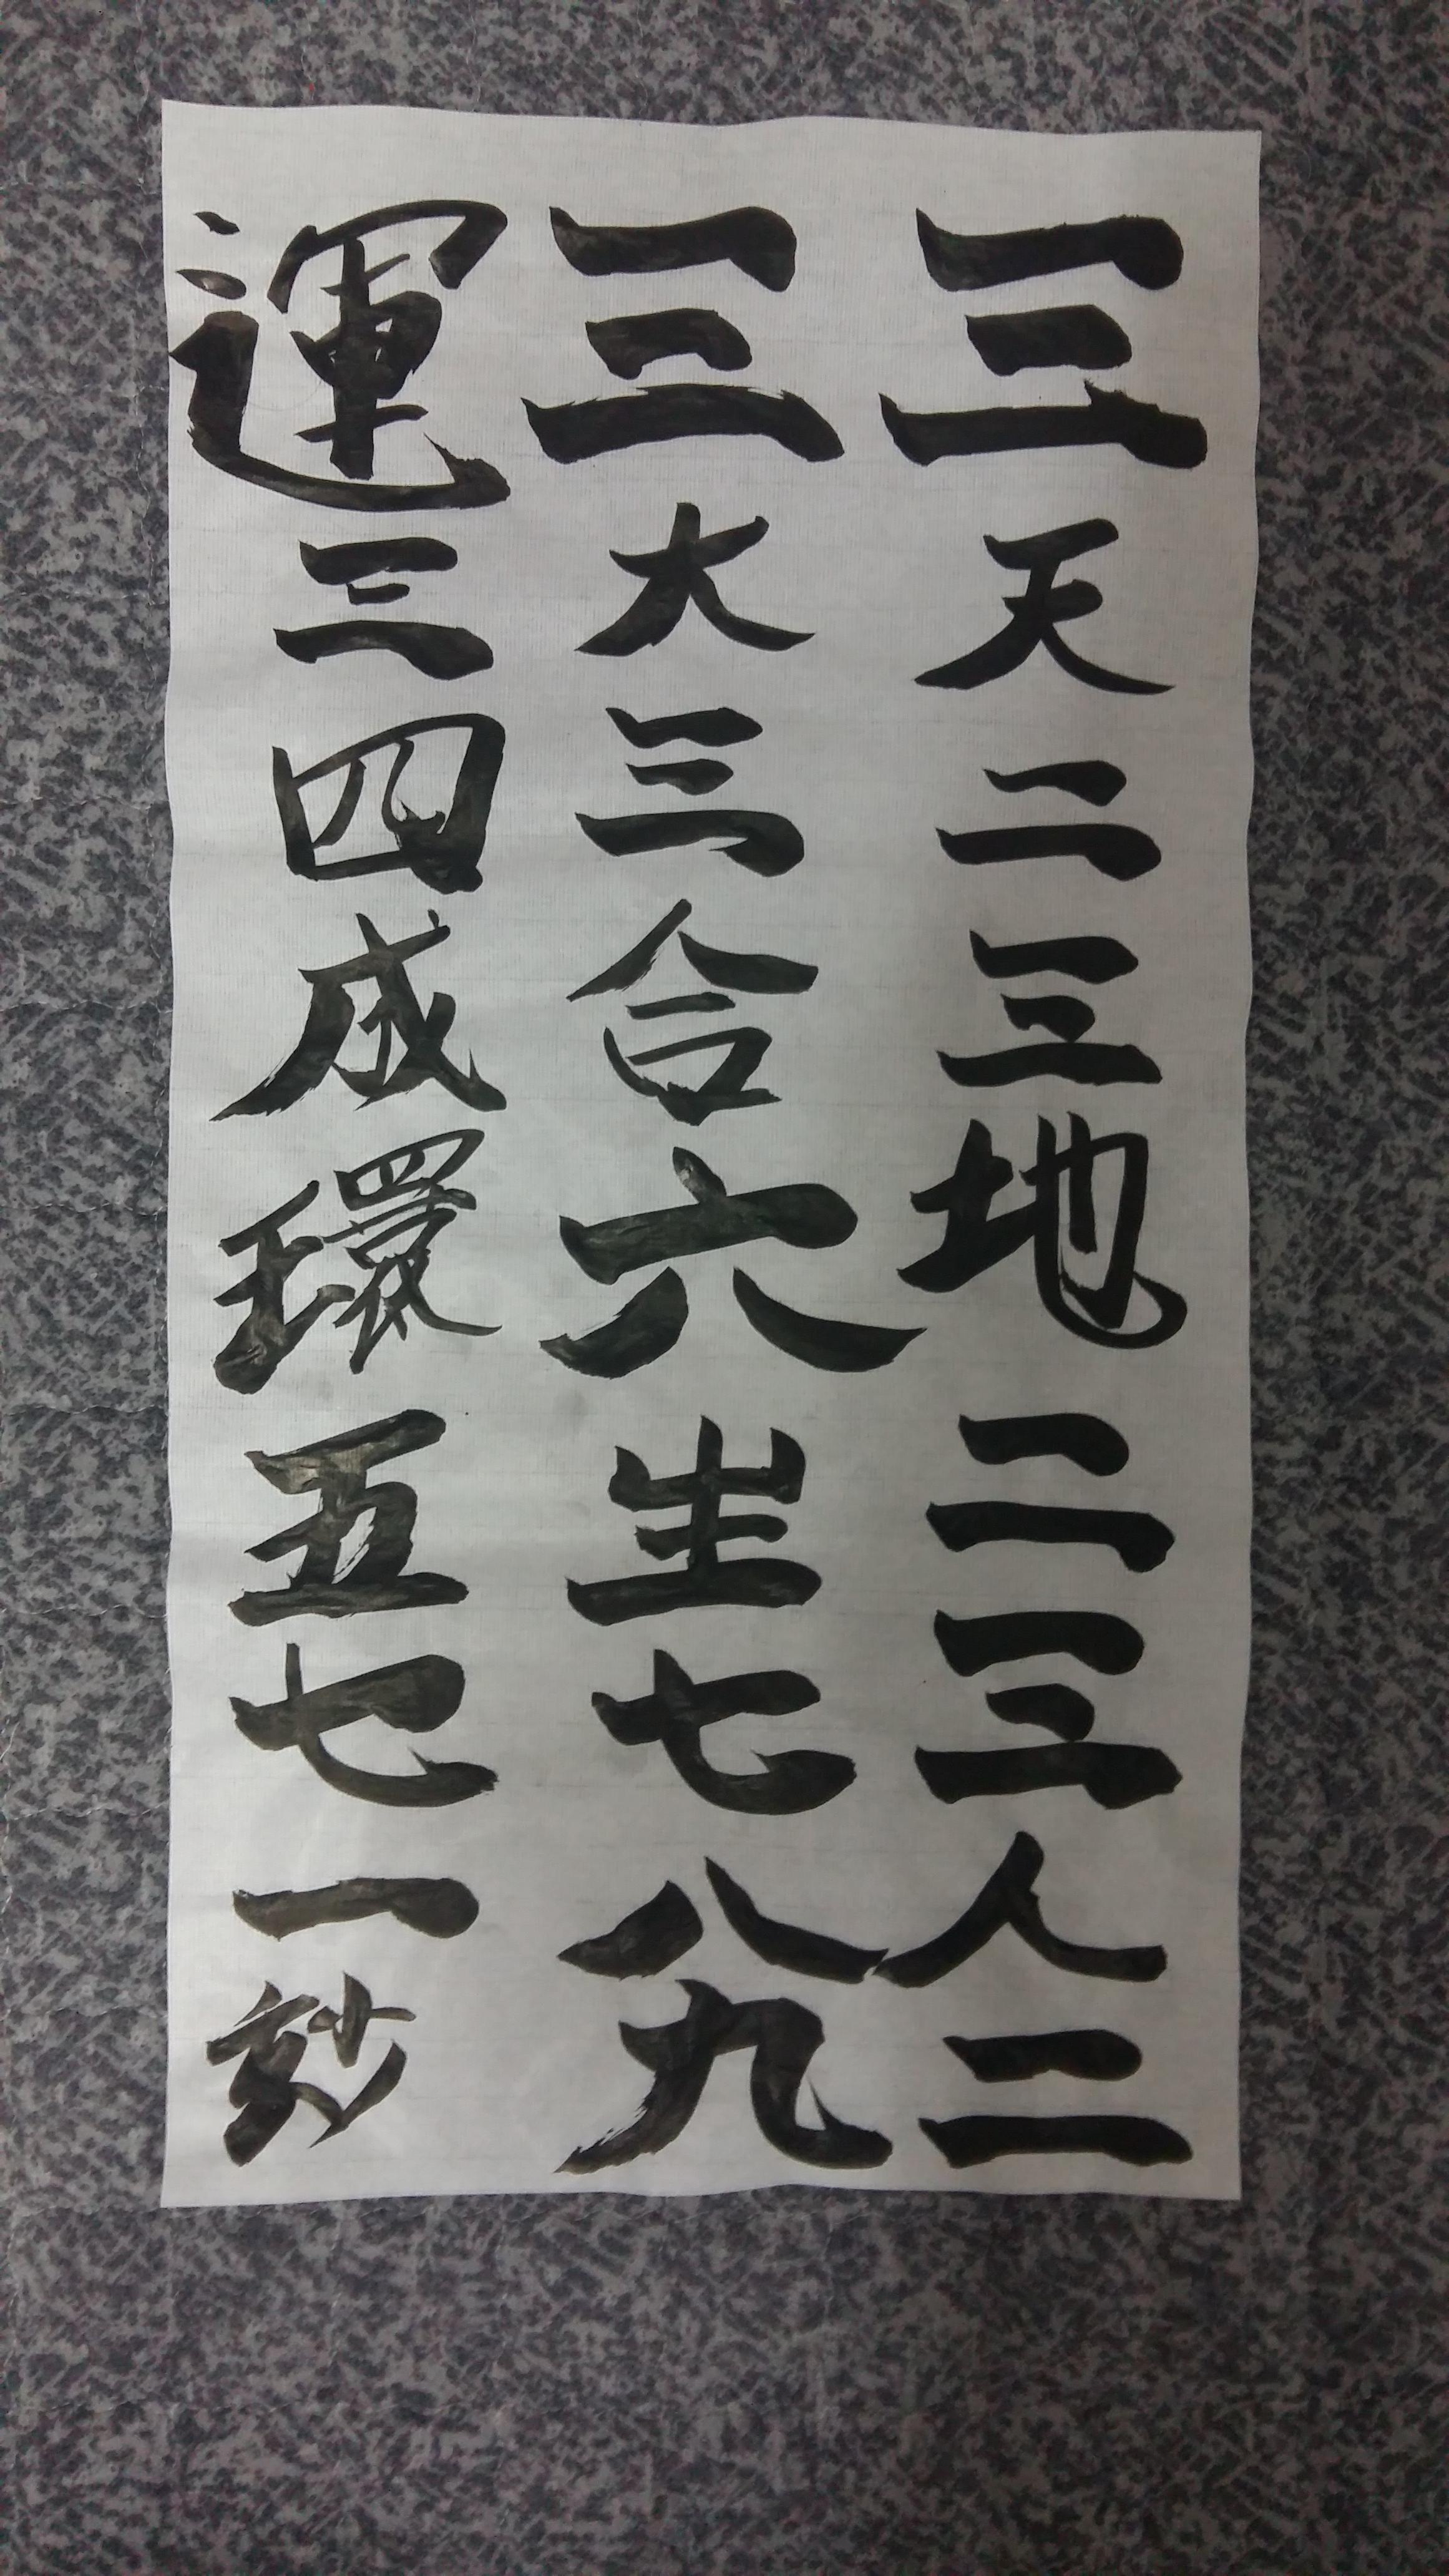 三天二三地二三人二
三大三合六生七八九
運三四成環五七一玅